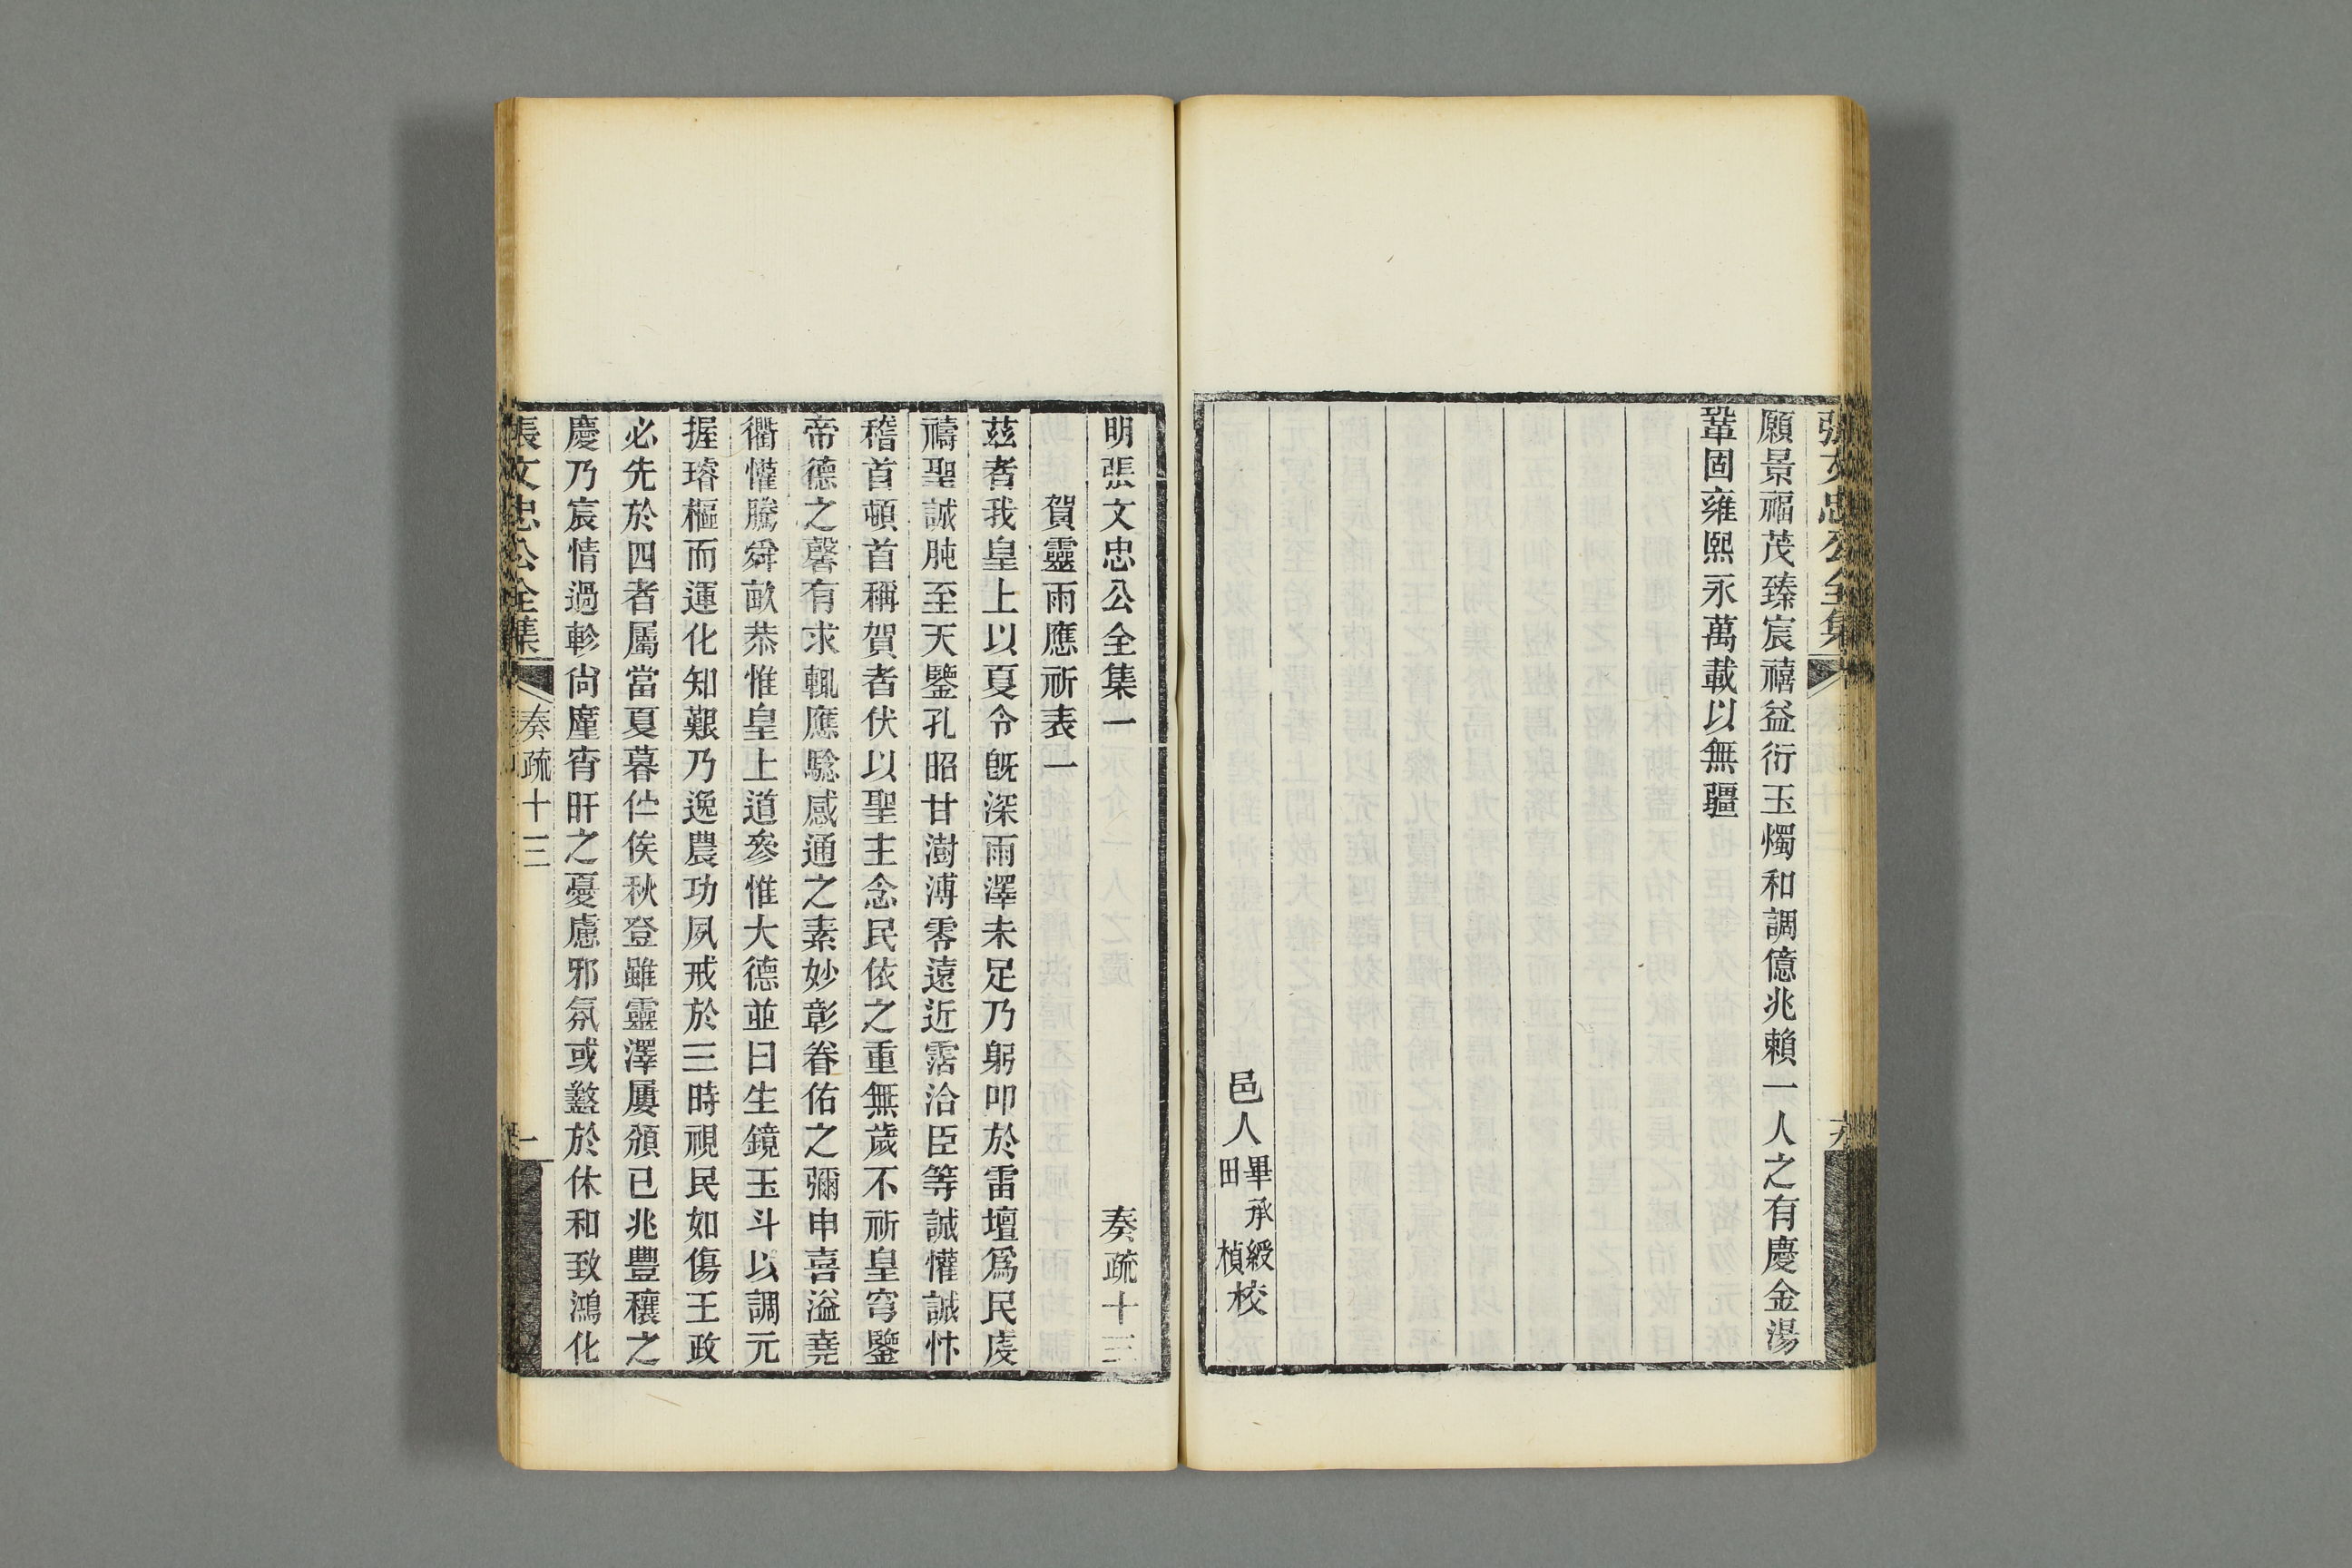 願景福茂臻宸禧益衍玉燭和調億兆賴一人之有慶金湯
鞏固雍熙永萬載以無疆
邑人畢承綬田楨校
明張文忠公全集一 奏疏十三
賀靈雨應祈表一
茲者我皇上以夏令旣深雨澤未足乃躬叩於雷壇爲民虔
禱聖誠肫至天鑒孔昭甘澍溥零遠近霑洽臣等誠懽誠忭
稽首頓首稱賀者伏以聖主念民依之重無歲不祈皇穹鑒
帝德之馨有求輒應騐感通之素妙彰眷佑之彌申喜溢堯
衢懽騰舜畝恭惟皇上道參惟大德並曰生鏡玉斗以調元
握璿樞而運化知艱乃逸農功夙戒於三時視民如傷王政
必先於四者屬當夏暮伫俟秋登雖靈澤屢頒已兆豐穰之
慶乃宸情過軫尙廑宵旰之憂慮邪氛或盭於休和致鴻化
張文忠公全集 奏疏十三 一